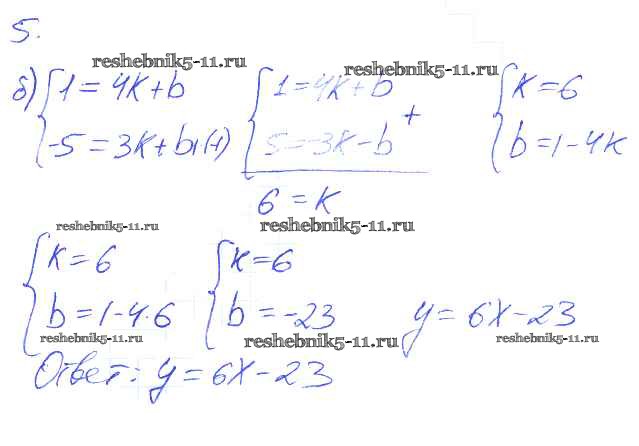 5.
reshebnik5-11.ru reshebnik5-11.ru
б) 1=4k+b 1=4k+b k=6
-5=3k+b |·(-1) 5=-3k-b + b=1-4k
6=k
reshebnik5-11.ru reshebnik5-11.ru
k=6 k=6
b=1-4·6 b=-23 y=6x-23
reshebnik5-11.ru reshebnik5-11.ru reshebnik5-11.ru
Ответ: y=6x-23